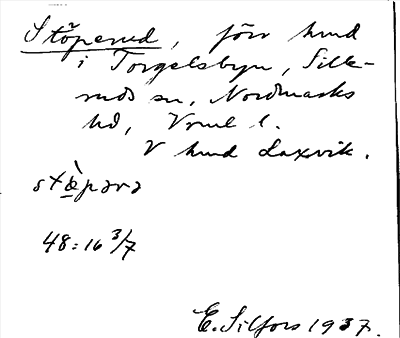 Stöperud, förr hmd
i Torgelsbyn, Sille-
ruds sn, Nordmarks
hd, Vrml l.
V hmd Laxvik.
stæ̀pərə
48:16 3/7
E. Silfors 1937.